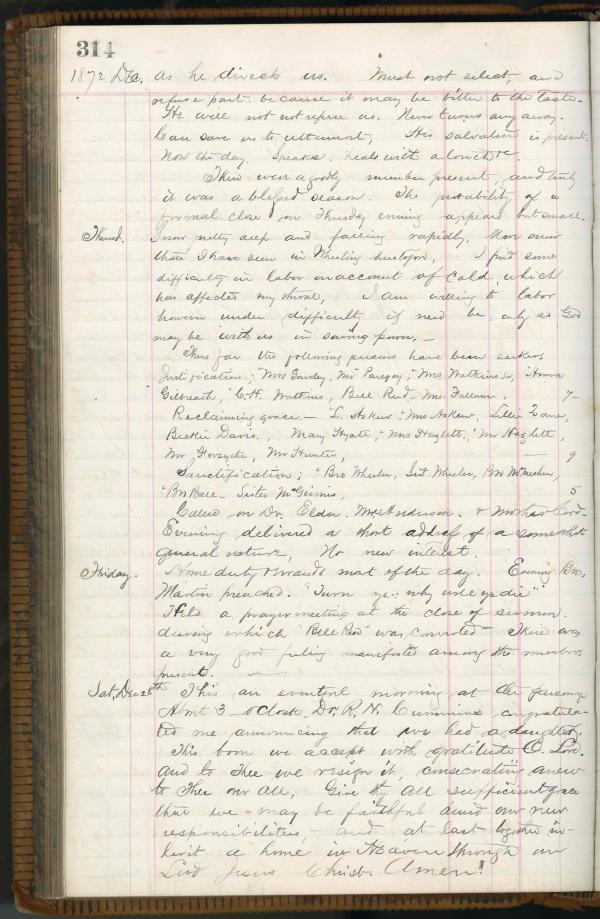 314
1872 Dec. as he directs us. Must not select, and
refuse part because it may be bitter to the taste.
He will not not refuse us. Never turns any away.
Can save us to uttermost, His salvation is present.
Now the day. Speaks. heals with a touch &c.
There were a goodly number present, and truly
it was a blessed season. The probability of a
formal close on Thursday evening appears but small.
Thursd. Snow pretty deep and falling rapidly, More snow
than I have seen in Wheeling heretofore, I find some
difficulty in labor on account of cold which
has affected my throat, I am willing to labor
however under difficulty if need be, only so God
may be with us in saving power,
Thus far the following persons have been seekers
Justification; "Mrs Gowdey, Mrs Paregoy, "Mrs Watkins Sr, "Anna
Gilbreath, "C.H. Watkins, Bell Reed, Mrs. Falleum. 7-
Reclaiming grace - "L. Askew, "Mrs Askew, Lillie Zane,
Beckie Davis, Mary Hyatt, "Mrs Hazlett, "Mr Hazlett,
Mr Forsythe, Mr Hunter, 9
Sanctification; "Bro Wheeler, Sist Wheeler, Bro McMechen,
"Bro Ball - Sister McGinnis, 5
Called on Dr, Elder, Mrs Anderson, & Mother
Evening delivered a short address of a somewhat
general nature, No new interest.
Friday. Home duty & errands most of the day. Evening Bro,
Martin preached. "Turn ye; why will ye die"
Held a prayer meeting at the close of sermon
during which "Bell Reed" was converted There was
a very good feeling manifested among the members
present.
Sat, Dec 28th This an eventful morning at the parsonage
About 3 - oclock Dr, R. N. Cummins congratula-
ted me announcing that we had a daughter.
This boon we accept with gratitude O. Lord.
And to Thee we resign it, consecrating anew
to Thee our all, Give thy all sufficient grace
that we may be faithful amid our new
responsibilities, - and at last together in-
herit a home in Heaven through our
Lord Jesus Christ. Amen!